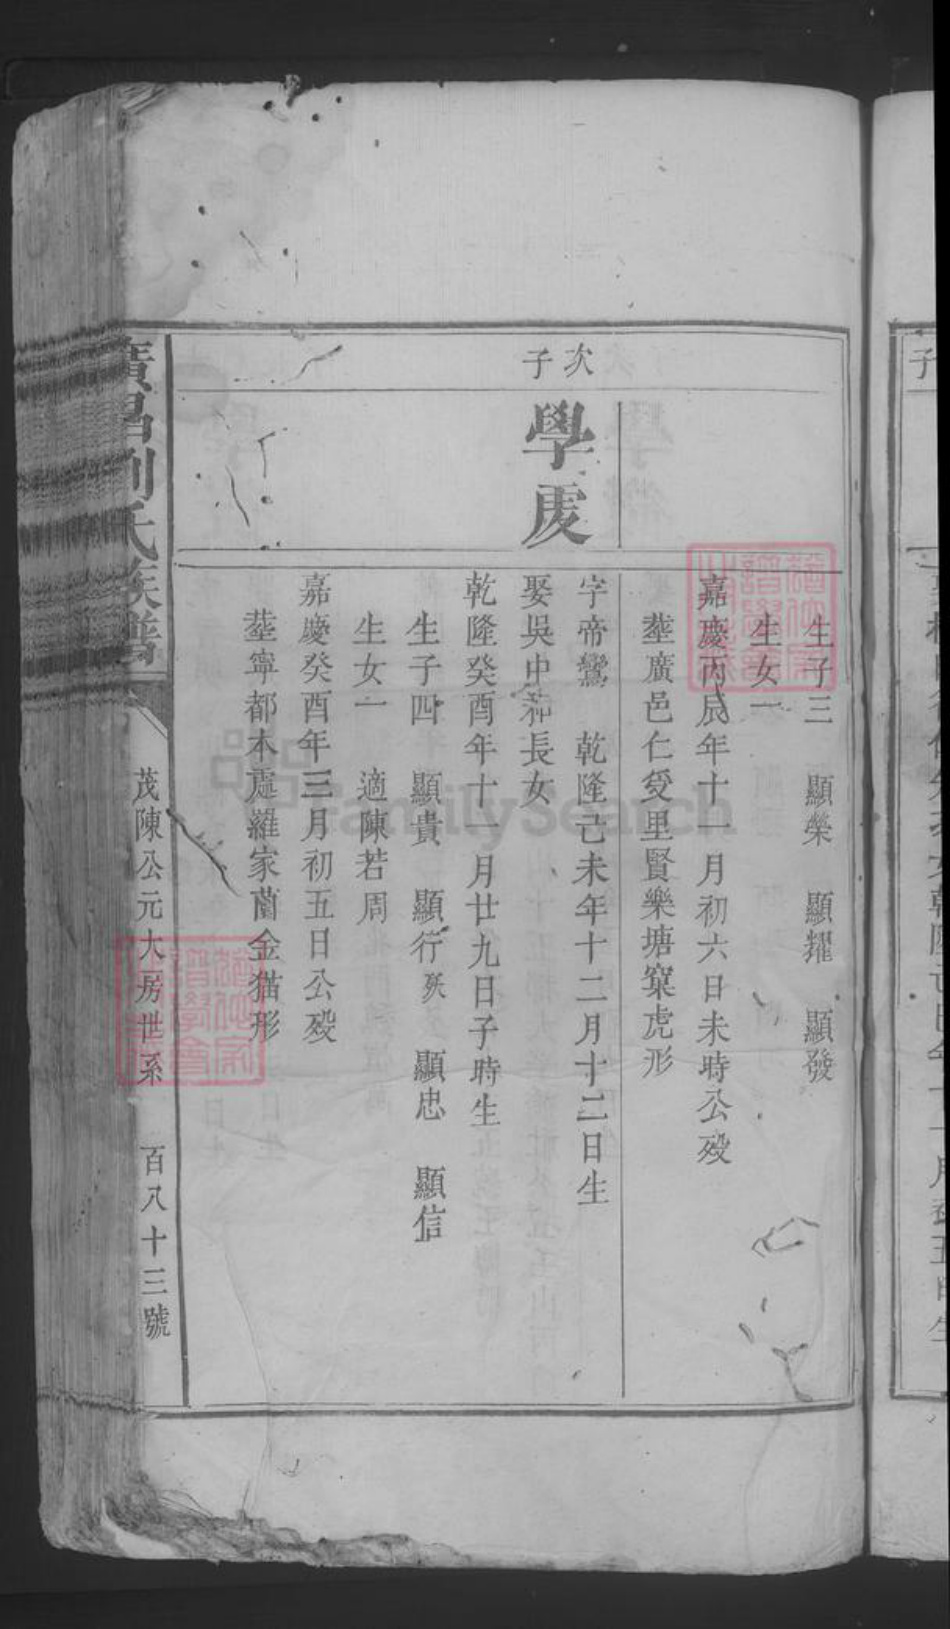 生子三 顯榮 顯耀 顯發
生女一
嘉慶丙辰年十一月初六日未時公殁
塟廣邑仁受里賢樂塘窠虎形
次子
學虔
字帝鸞 乾隆己未年十二月十二日生
娶吳中和長女
乾隆癸酉年十一月廿九日子時生
生子四 顯貴 顯行殀 顯忠 顯信
生女一 適陳若周
嘉慶癸酉年三月初五日公殁
塟寧都本處羅家蘭金猫形
廣昌劉氏族譜
茂陳公元大房世系 百八十三號
子
FamilySearch